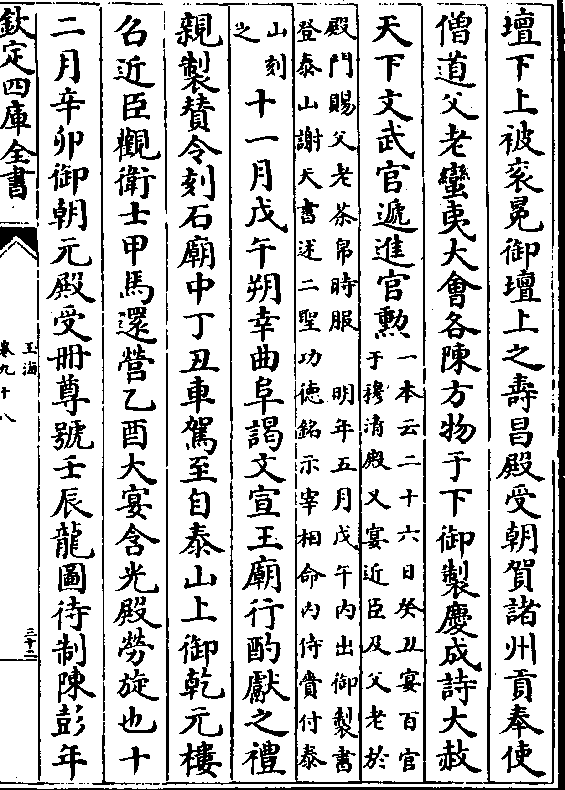 壇下上被衮冕御壇上之壽昌殿受朝賀諸州貢奉使
僧道父老蠻夷大會各陳方物于下御製慶成詩大赦
天下文武官遞進官勲
一本云二十六日癸丑宴百官
于穆清殿又宴近臣及父老於
殿門賜父老茶帛時服 明年五月戊午内出御製書
登泰山謝天書述二聖功德銘示宰相命内侍賫付泰
山刻
之
十一月戊午朔幸曲阜謁文宣王廟行酌獻之禮
親製賛令刻石廟中丁丑車駕至自泰山上御乾元樓
召近臣觀衛士甲馬還營乙酉大宴含光殿勞旋也十
二月辛卯御朝元殿受冊尊號壬辰龍圖待制陳彭年
欽定四庫全書
玉海
卷九十八
三十二